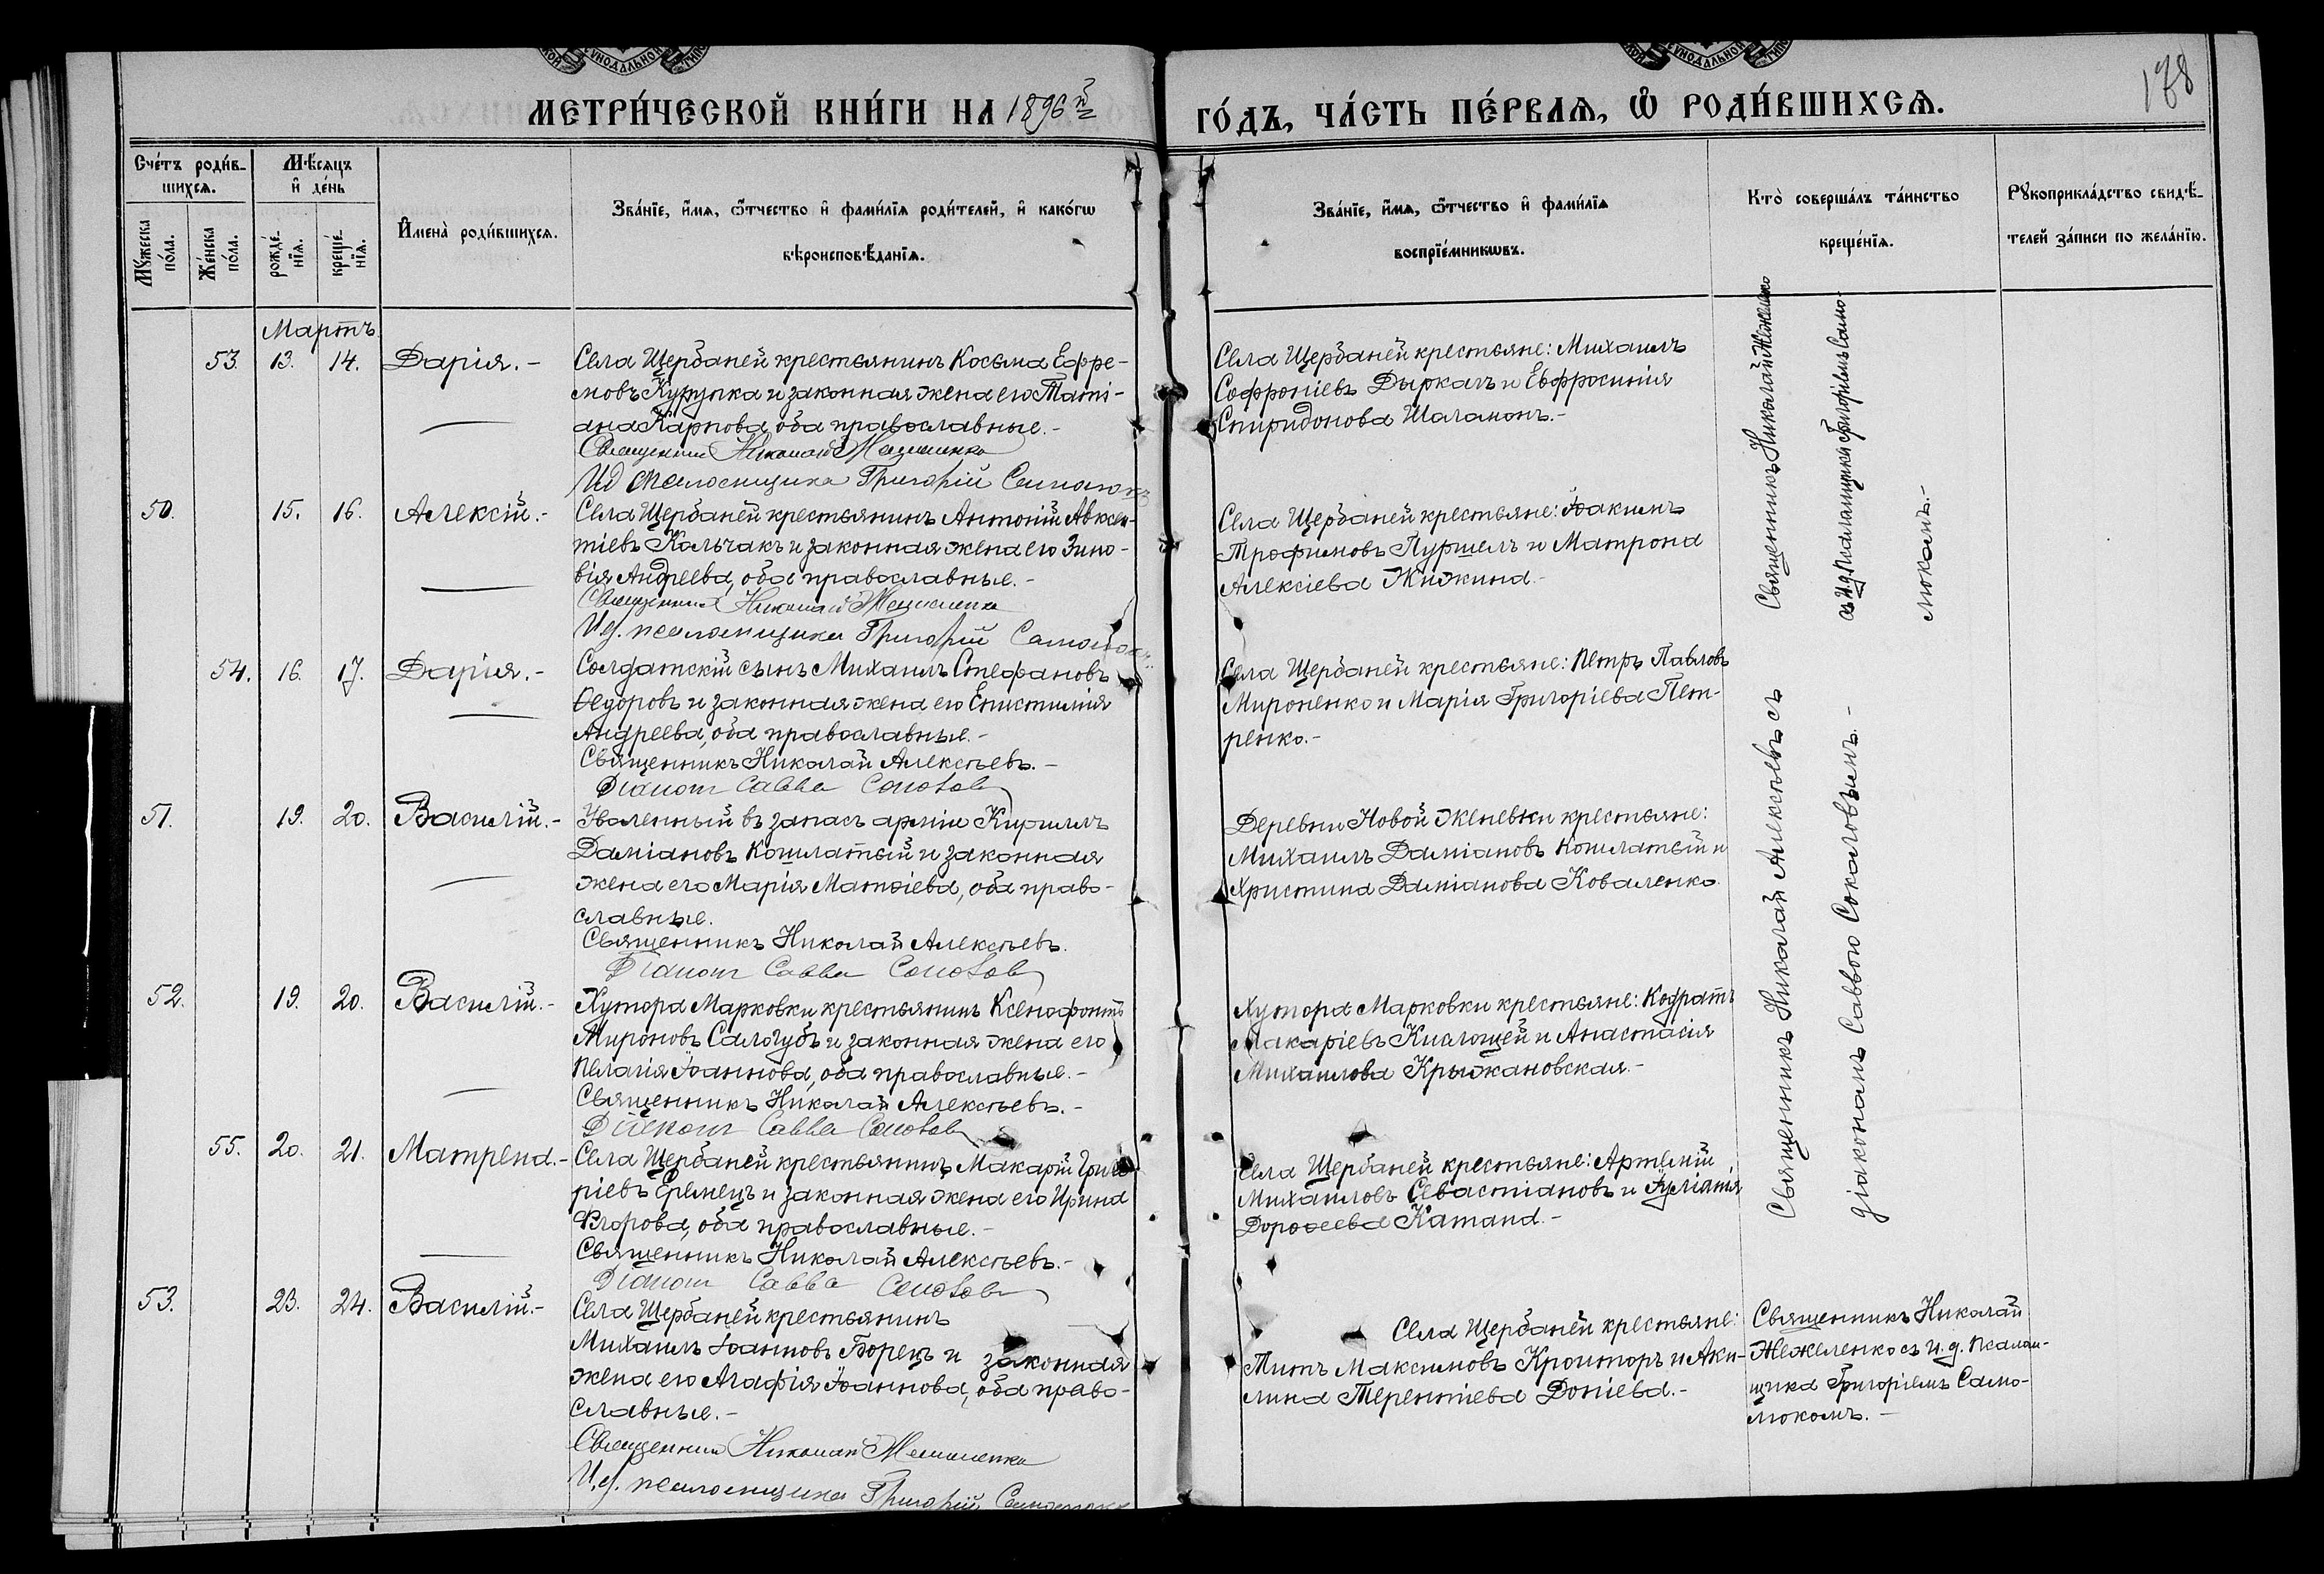 МЕТРИ́ЧЕСКОЙ КНИ́ГИ НА 1896 й
ГО́ДЪ, ЧА́СТЬ ПЕ́РВАЯ, Ѡ҆ РОДИ́ВШИХСЯ.
178
Сче́тъ роди́в-
шихся.
Мѣ́сяцъ
и҆ де́нь
Му́жеска
по́ла.
Же́нска
по́ла.
рожде́-
нїя.
креще́-
нїя.
И҆мена̀ роди́вшихся.
Зва́нїе, и҆́мя, ѻ҆́тчество и҆ фами́лїя роди́телей, и҆ како́гѡ
вѣроисповѣ́данїя.
Зва́нїе, и҆́мя, ѻ҆́тчество и҆ фами́лїя
воспрїе́мникѡвъ.
Кто̀ соверша́лъ та́инство
креще́нїя.
Рꙋкоприкла́дство свидѣ́-
телей за́писи по жела́нїю.
Мартъ
53. 13. 14. Дарія.-
Села Щербаней крестьянинъ Косьма Ефре-
мовъ Курупка и законная жена его Таті-
ана Карпова, оба православные.-
Священник Николай Жежеленко
Ид псаломщика Григорій Самолюкъ
Села Щербаней крестьяне: Михаилъ
Софроніевъ Дыркачъ и Евфросинія
Спиридонова Шаламонъ.-
50. 15. 16. Алексій.-
Села Щербаней крестьянинъ Антоній Авксен-
тіевъ Кольчакъ и законная жена его Зино-
вія Андреева, оба православные.-
Священник Николай Жежеленко
И.д. псаломщика Григорій Самолюкъ
Села Щербаней крестьяне: Іоакимъ
Трофимовъ Пуршелъ и Матрона
Алексіева Жижина.-
Священникъ Николай Жежеленко
съ и.д. псаломщика Григоріемъ Само-
люкомъ.-
54. 16. 17. Дарія.-
Солдатскій сынъ Михаилъ Стефановъ
Ѳедоровъ и законная жена его Епистимія
Андреева, оба православные.-
Священникъ Николай Алексѣевъ.-
Діакон Савва Соколов
Села Щербаней крестьяне: Петръ Павловъ
Мироненко и Марія Григоріева Пет-
ренко.-
51. 19. 20. Василій.-
Уволенный въ запасъ арміи Кириллъ
Даміановъ Кошлатый и законная
жена его Марія Матѳіева, оба право-
славные.
Священникъ Николай Алексѣевъ.
Діакон Савва Соколов
Деревни Новой Женевки крестьяне:
Михаилъ Даміановъ Кошлатый и
Христина Даміанова Коваленко.
52. 19. 20. Василій.-
Хутора Марковки крестьянинъ Ксенофонтъ
Мироновъ Сологубъ и законная жена его
Пелагія Іоаннова, оба православные.-
Священникъ Николай Алексѣевъ.-
Діакон Савва Соколов
Хутора Марковки крестьяне: Кодратъ
Макаріевъ Кислощей и Анастасія
Михаилова Крыжановская.-
55. 20. 21. Матрена.-
Села Щербаней крестьянинъ Макарій Григо-
ріевъ Еремецъ и законная жена его Ирина
Флорова, оба православные.-
Священникъ Николай Алексѣевъ.-
Діакон Савва Соколов
Села Щербаней крестьяне: Артемій
Михаиловъ Севастіановъ и Іуліанія
Дороѳеева Катана.-
Священникъ Николай Алексѣевъ съ
діакономъ Саввою Соколовымъ.-
53. 23. 24. Василій.-
Села Щербаней крестьянинъ
Михаилъ Іоанновъ Борецъ и законная
жена его Агафія Іоаннова, оба право-
славные.-
Священник Николай Жежеленко
И.д. псаломщика Григорій Самолюкъ
Села Щербаней крестьяне:
Титъ Максимовъ Кроиторъ и Аки-
лина Терентіева Доніева.-
Священникъ Николай
Жежеленко съ и.д. псалом-
щика Григоріемъ Само-
люкомъ.-